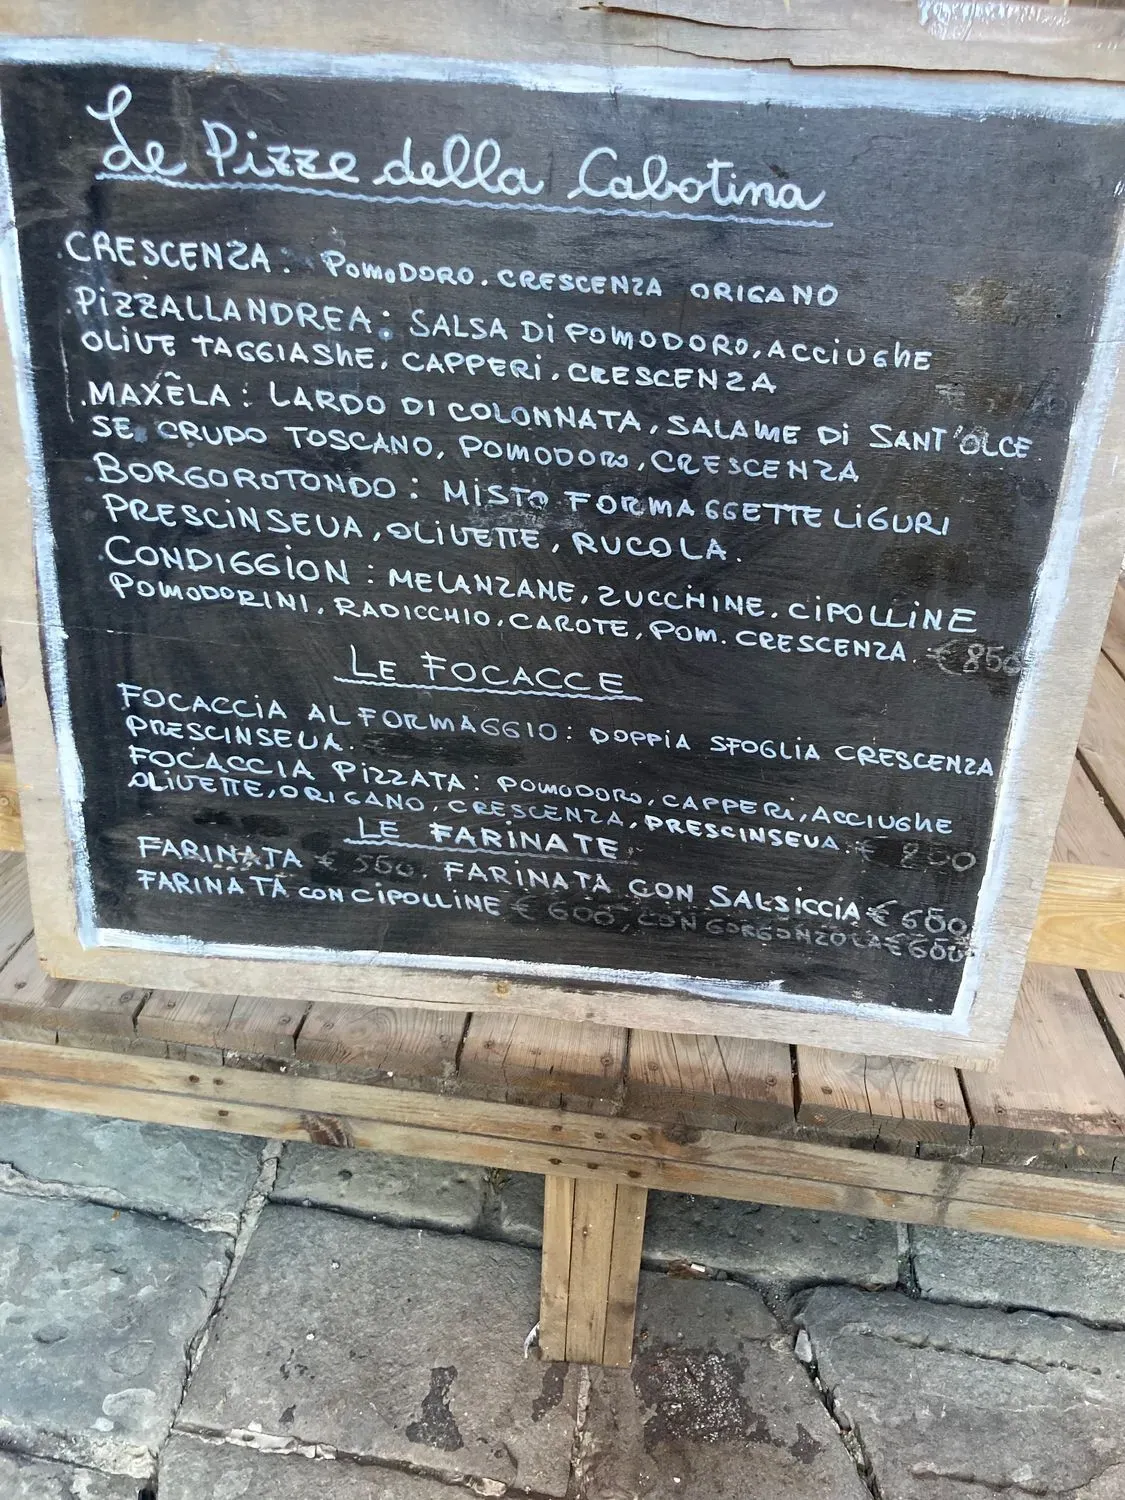 Le Pizze della Cabotina
.CRESCENZA. POMODORO. CRESCENZA ORIGANO
.PIZZALLANDREA: SALSA DI POMODORO, ACCIUGHE
OLIVE TAGGIASHE, CAPPERI, CRESCENZA
.MAXẼLA: LARDO DI COLONNATA, SALAME DI SANT'OLCE
SE, CRUDO TOSCANO, POMODORO, CRESCENZA
.BORGOROTONDO: MISTO FORMAGGETTE LIGURI
PRESCINSEUA, OLIVETTE, RUCOLA.
.CONDIGGION: MELANZANE, ZUCCHINE, CIPOLLINE
POMODORINI, RADICCHIO, CAROTE, POM. CRESCENZA. € 850
LE FOCACCE
FOCACCIA AL FORMAGGIO: DOPPIA SFOGLIA CRESCENZA
PRESCINSEUA.
FOCACCIA PIZZATA: POMODORO, CAPPERI, ACCIUGHE
OLIVETTE, ORIGANO, CRESCENZA, PRESCINSEUA. €
LE FARINATE
FARINATA € 550. FARINATA CON SALSICCIA € 600
FARINATA CON CIPOLLINE € 600, CON GORGONZOLA € 600